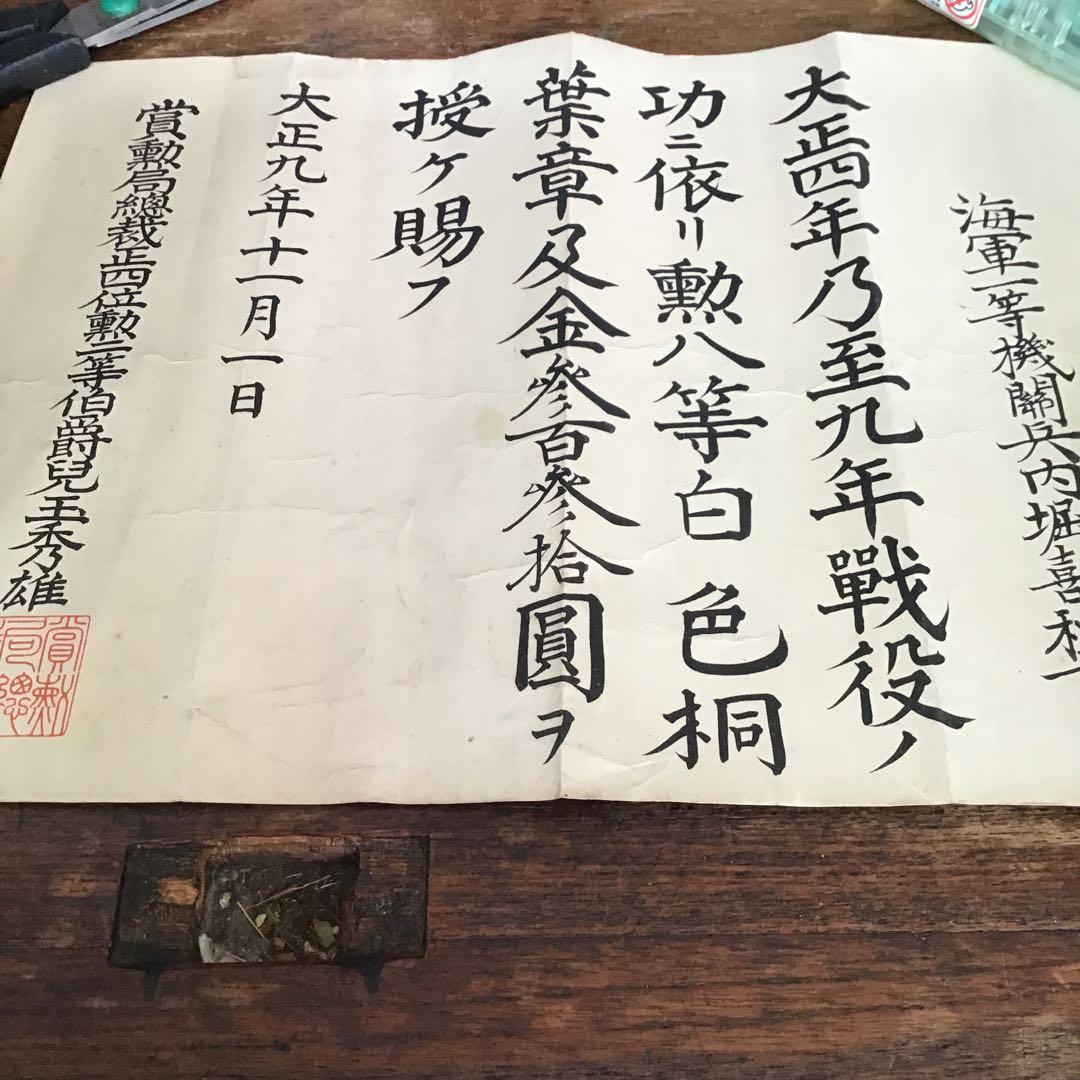 海軍一等機關兵内堀喜
大正四年乃至九年戰役ノ
功ニ依リ勳八等白色桐
葉章及金參百參拾圓ヲ
授ケ賜フ
大正九年十一月一日
賞勳局總裁正四位勳二等伯爵兒玉秀雄
賞勳
局總